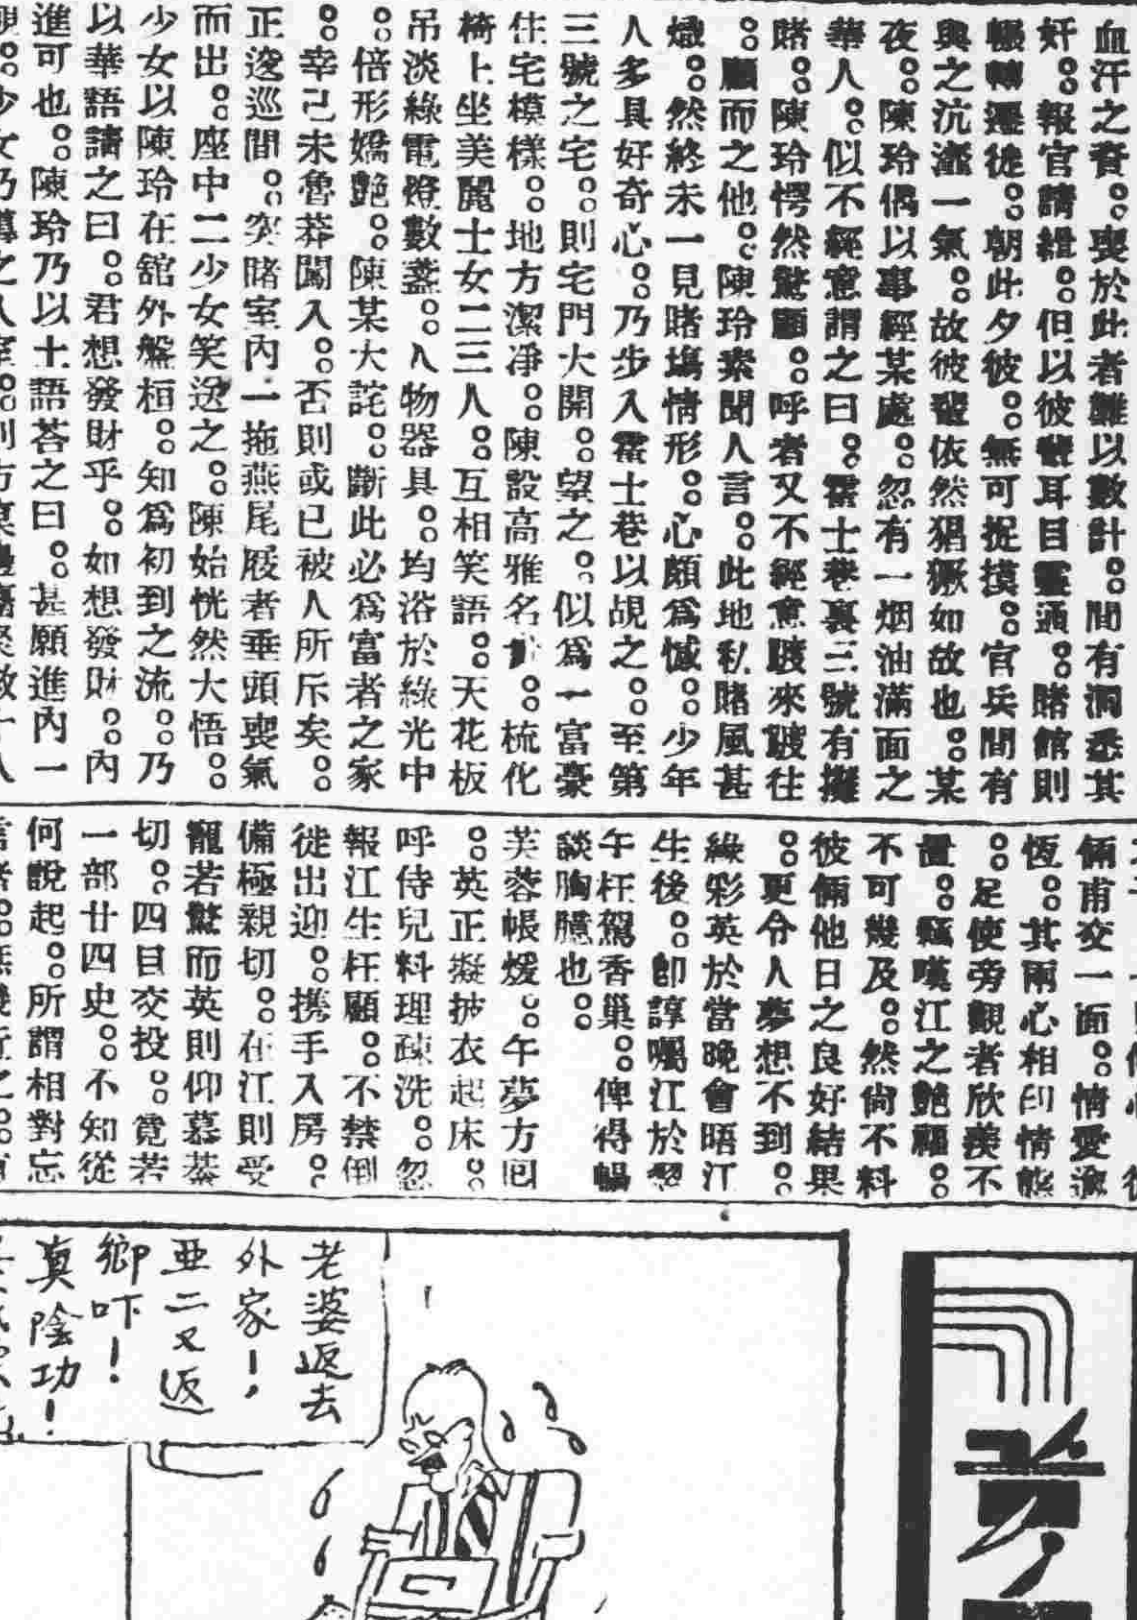 血汗之資。喪於此者難以數計。間有洞悉其
奸。報官請緝。但以彼輩耳目靈通。賭館則
輾轉遷徙。朝此夕彼。無可捉摸。官兵間有
與之沆瀣一氣。故彼輩依然猖獗如故也。某
夜。陳玲偶以事經某處。忽有一烟油滿面之
華人。似不經意謂之曰。霍士巷裏三號有攤
賭。陳玲愕然驚顧。呼者又不經意踱來踱往
。顧而之他。陳玲素聞人言。此地私賭風甚
熾。然終未一見賭塲情形。心頗爲憾。少年
人多具好奇心。乃步入霍士巷以覘之。至第
三號之宅。則宅門大開。望之。似爲一富豪
住宅模樣。地方潔凈。陳設高雅名貴。梳化
椅上坐美麗士女二三人。互相笑語。天花板
吊淡綠電燈數盞。人物器具。均浴於綠光中
。倍形嬌艶。陳某大詫。斷此必爲富者之家
。幸己未魯莽闖入。否則或已被人所斥矣。
正逡巡間。突睹室內一拖燕尾屐者垂頭喪氣
而出。座中二少女笑送之。陳始恍然大悟。
少女以陳玲在舘外盤桓。知爲初到之流。乃
以華語請之曰。君想發財乎。如想發財。內
進可也。陳玲乃以土語荅之曰。甚願進內一
倆甫交一面。情愛逾
恆。其兩心相印情態
。足使旁觀者欣羨不
置。竊嘆江之艶福。
不可幾及。然尙不料
彼倆他日之良好結果
。更令人夢想不到。
綠彩英於當晚會晤江
生後。卽諄囑江於翌
午枉駕香巢。俾得暢
談胸臆也。
芙蓉帳煖。午夢方囘
。英正擬披衣起床。
呼侍兒料理疎洗。忽
報江生枉顧。不禁倒
徙出迎。携手入房。
備極親切。在江則受
寵若驚而英則仰慕綦
切。四目交投。霓若
一部廿四史。不知從
何說起。所謂相對忘
老婆返去
外家！，
亜二又返
鄉吓！
真陰功！